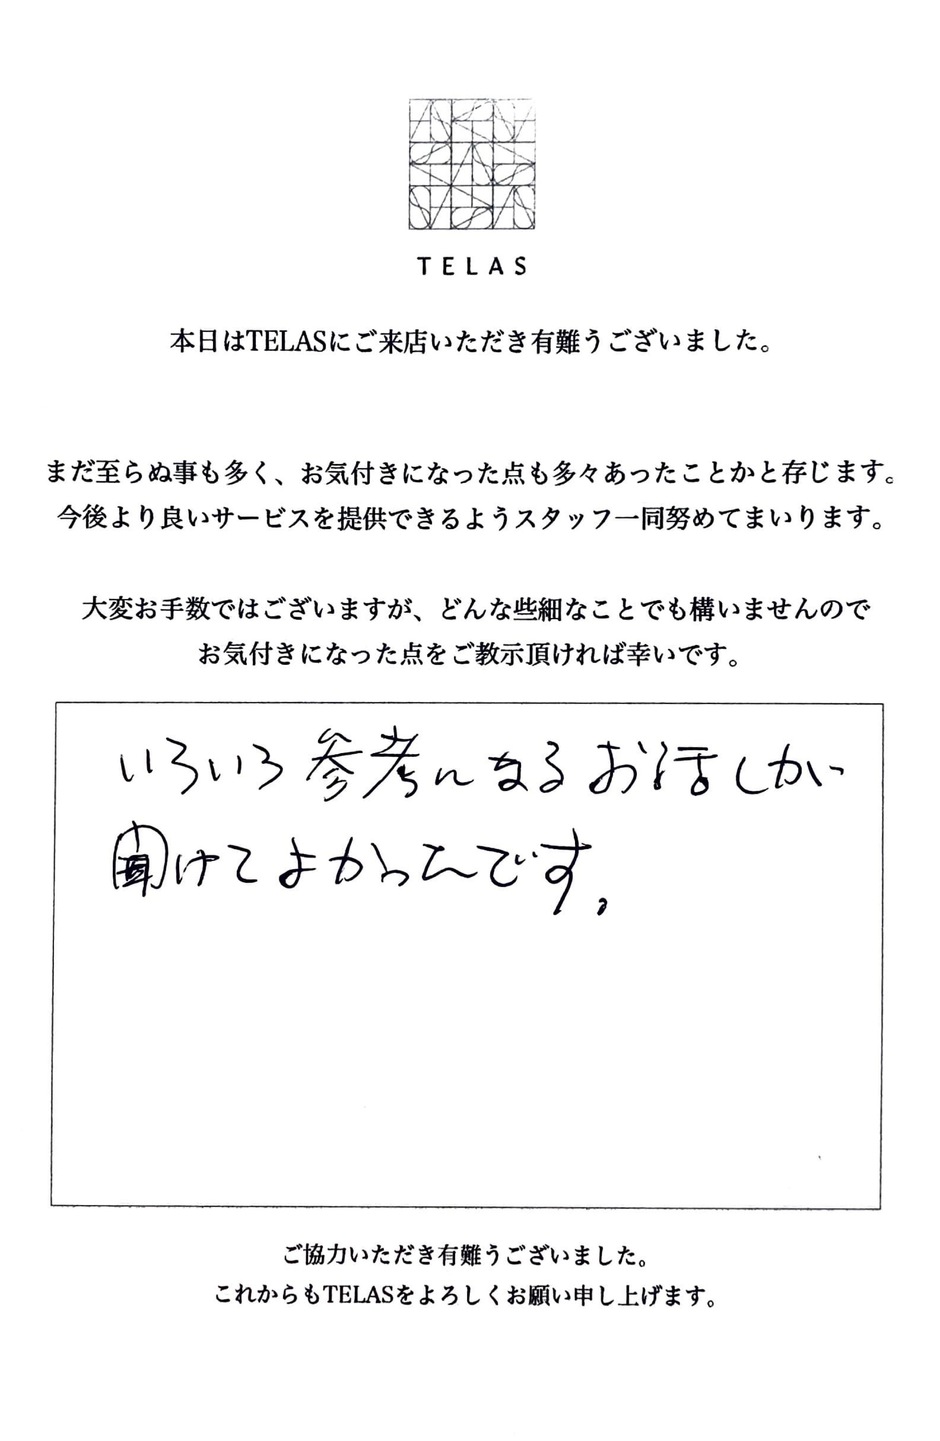 TELAS
本日はTELASにご来店いただき有難うございました。
まだ至らぬ事も多く、お気付きになった点も多々あったことかと存じます。
今後より良いサービスを提供できるようスタッフ一同努めてまいります。
大変お手数ではございますが、どんな些細なことでも構いませんので
お気付きになった点をご教示頂ければ幸いです。
いろいろ参考になるお話しがい
聞けてよかったんです。
ご協力いただき有難うございました。
これからもTELASをよろしくお願い申し上げます。